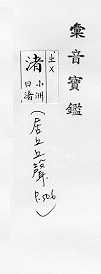 彙音寶鑑
渚
小洲
曰渚
(居五上聲
P.506)